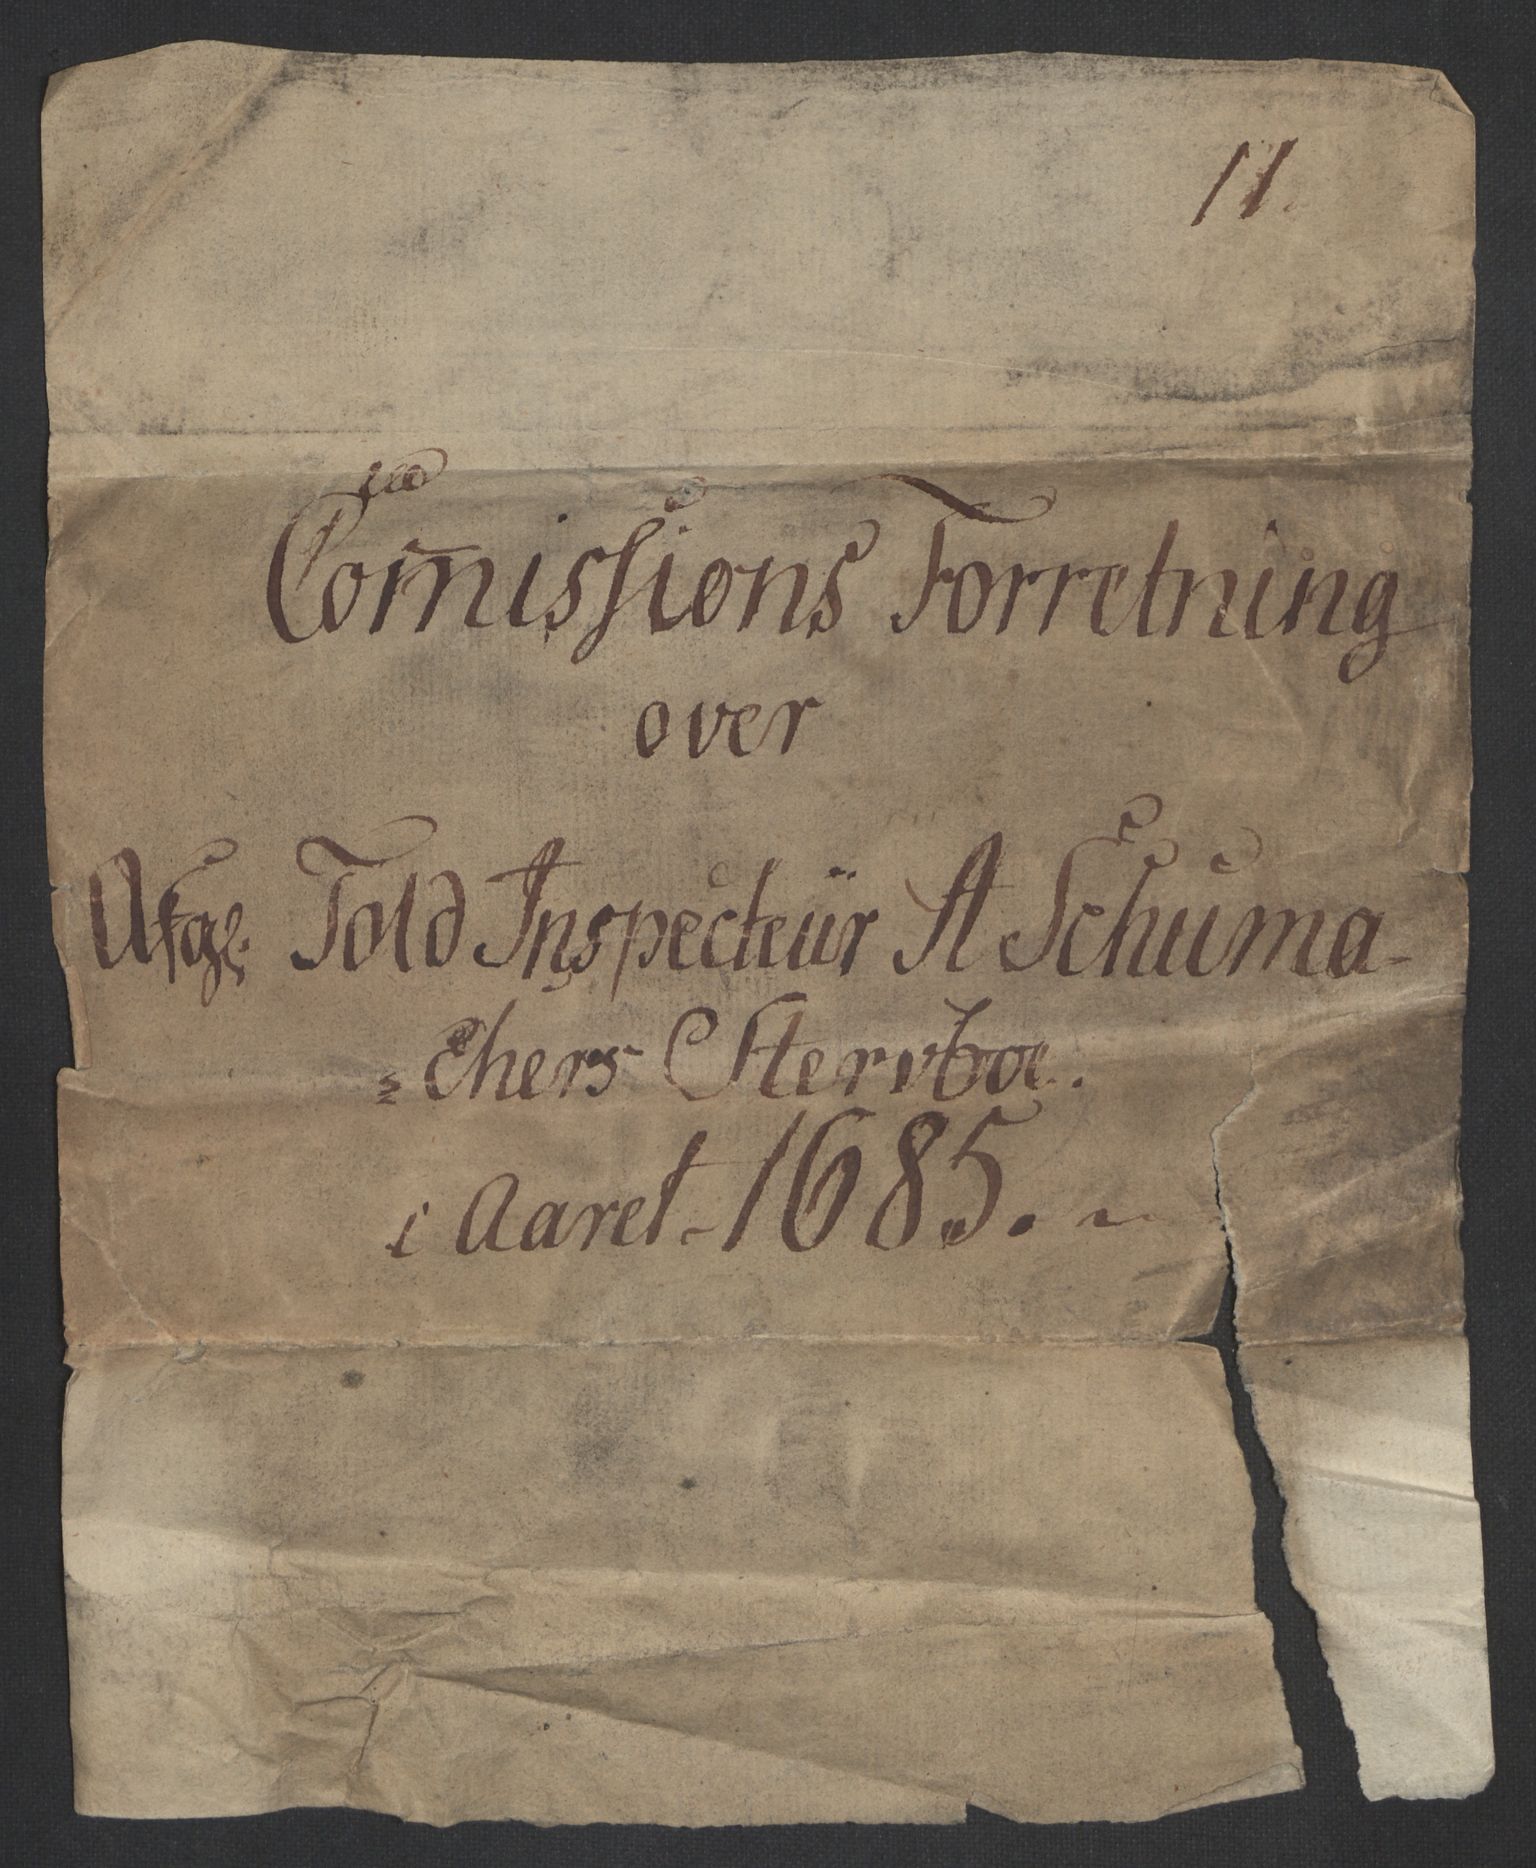 11.
Com̄issions Forretning
over
Afgl: Told Inspecteur A Schuma-
=chers Sterboe.
i Aaret 1685.